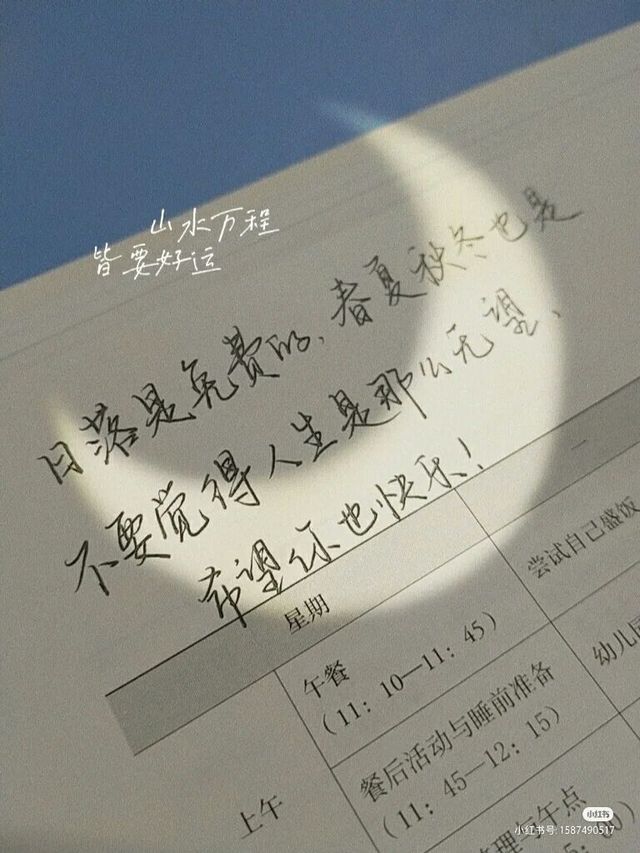 山水万程
皆要好运
日落是免费的，春夏秋冬也是
不要觉得人生是那么无望、
希望你也快乐！
星期
一
午餐
（11：10—11：45）
尝试自己盛饭
上午
餐后活动与睡前准备
（11：45—12：15）
幼儿园
理与午点
小红书
小红书号: 1587490517